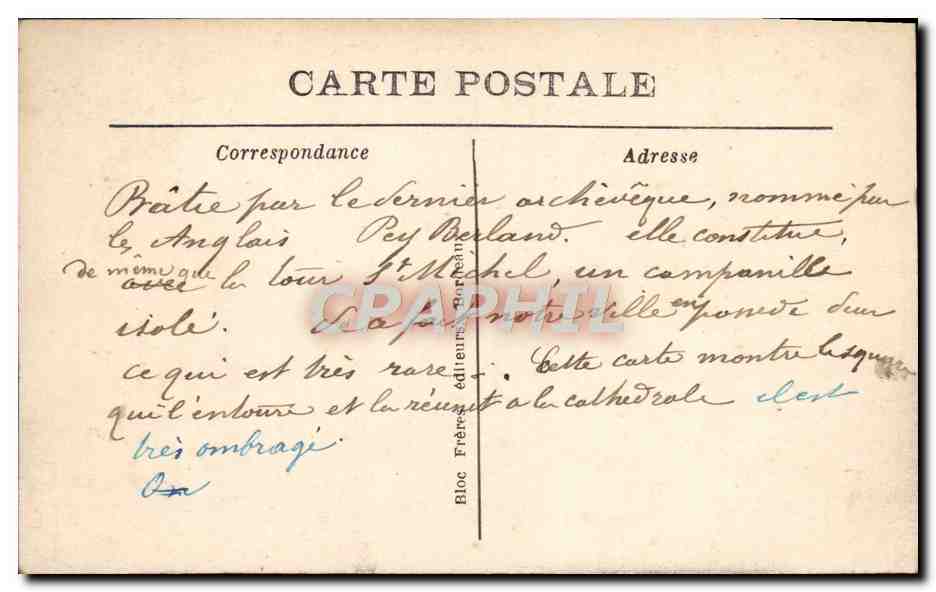 CARTE POSTALE
Correspondance
Adresse
Bâtie par le dernier archevêque, nommé par
les Anglais Pey Berland. elle constitue,
de même que
avec la tour St Michel, un campanille
isolé. notre ville en possède deux
ce qui est très rare -. Cette carte montre le square
qui l'entoure et la réunit a la cathedrale il est
très ombragé.
On
Bloc Frères, éditeurs, Bordeaux
CRAPHIL